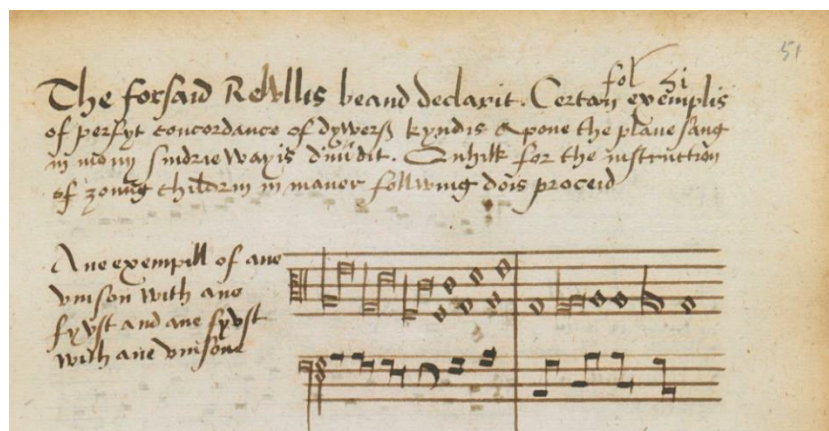 51
fol 51
The forsaid Rewllis beand declarit. Certan exemplis
of perfyt concordance of dywerß kyndis Apone the plane sang
in mony sindrie wayis diuidit. Quhilk for the instruction
of zoung childrin in maner following dois proceid
Ane exempill of ane
vnison with ane
fyvst and ane fyvst
with ane vnisone